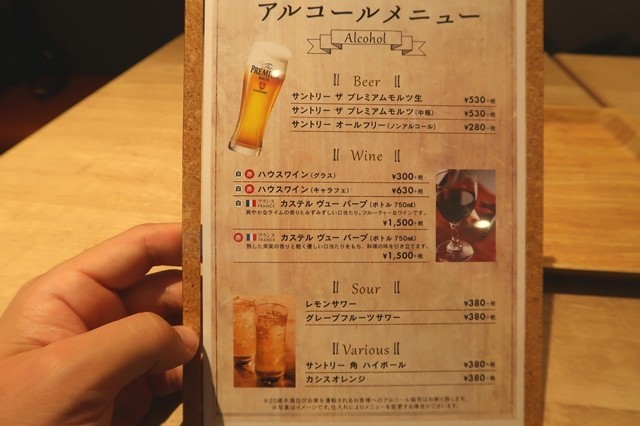 アルコールメニュー
Alcohol
PREMIUM
Beer
サントリー ザ プレミアムモルツ生 ¥530+税
サントリー ザ プレミアムモルツ(中瓶) ¥530+税
サントリー オールフリー(ノンアルコール) ¥280+税
Wine
白 赤 ハウスワイン(グラス) ¥300+税
白 赤 ハウスワイン(キャラフェ) ¥630+税
白 フランス FRANCE カステル ヴュー パープ(ボトル 750ml)
爽やかなライムの香りとみずみずしい口当たり。フルーティーなワインです。
¥1,500+税
赤 フランス FRANCE カステル ヴュー パープ(ボトル 750ml)
熟した果実の香りと軽く優しい口当たりをもち、料理の味を引き立てます。
¥1,500+税
Sour
レモンサワー ¥380+税
グレープフルーツサワー ¥380+税
Various
サントリー 角 ハイボール ¥380+税
カシスオレンジ ¥380+税
※20歳未満及びお車を運転されるお客様へのアルコール販売はお断り致します。
※写真はイメージです。仕入れによりメニューを変更する場合がございます。